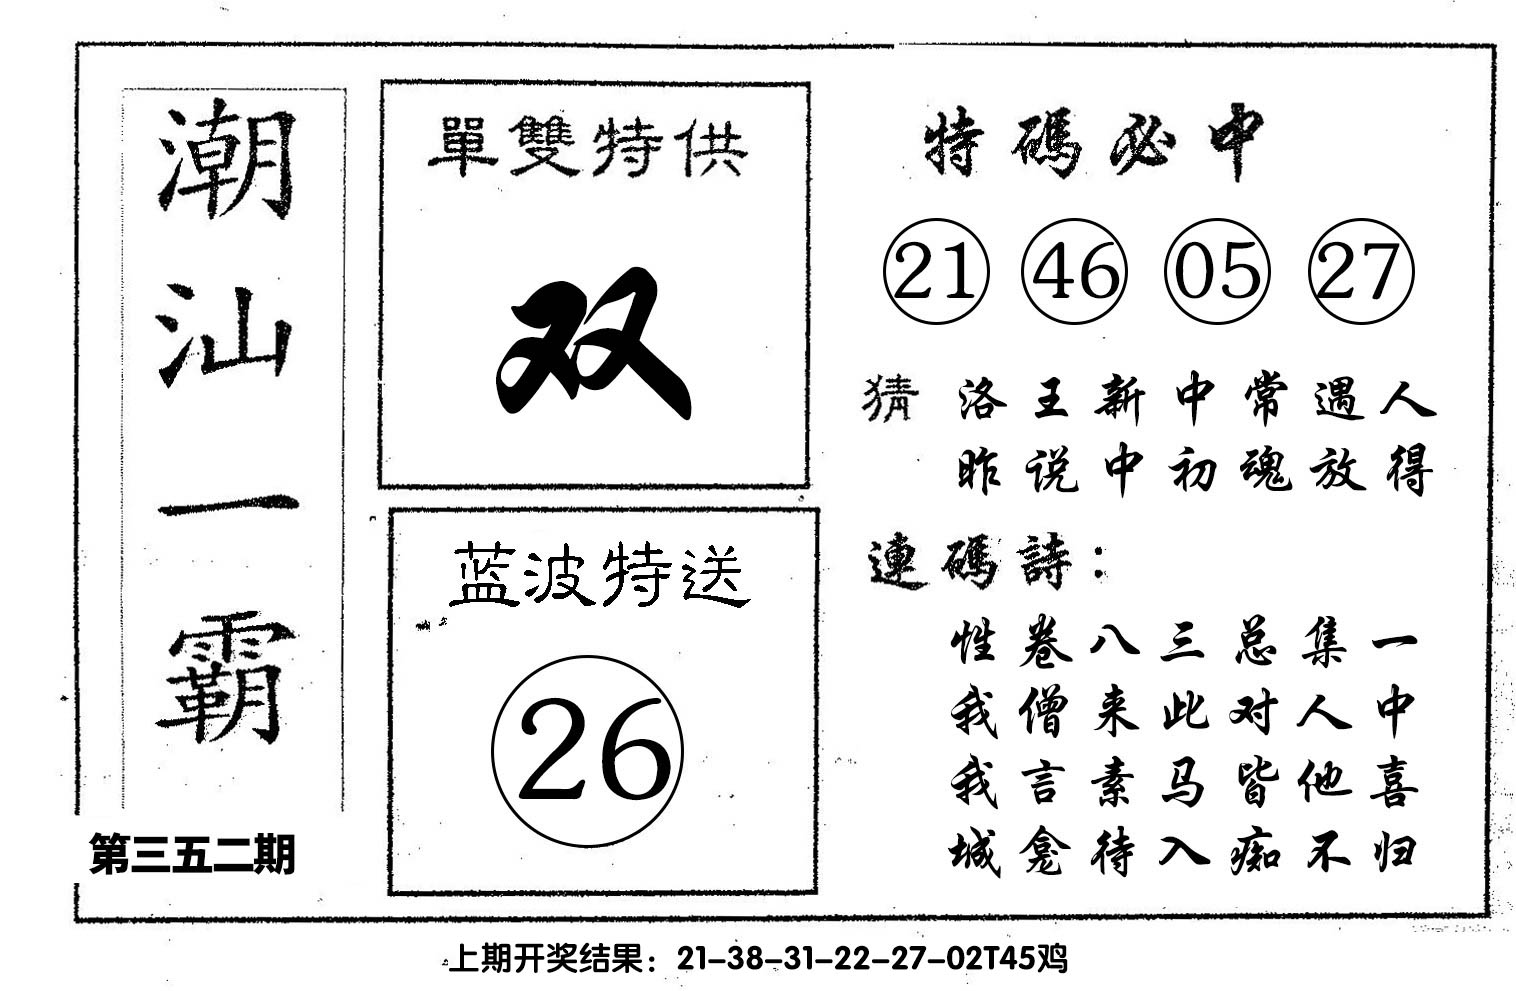 潮汕一霸
第三五二期
單雙特供
双
蓝波特送
26
特碼必中
21 46 05 27
猜 洛王新中常遇人
昨说中初魂放得
連碼詩：
性卷八三总集一
我僧来此对人中
我言素马皆他喜
城龛待入痴不归
上期开奖结果：21-38-31-22-27-02T45鸡